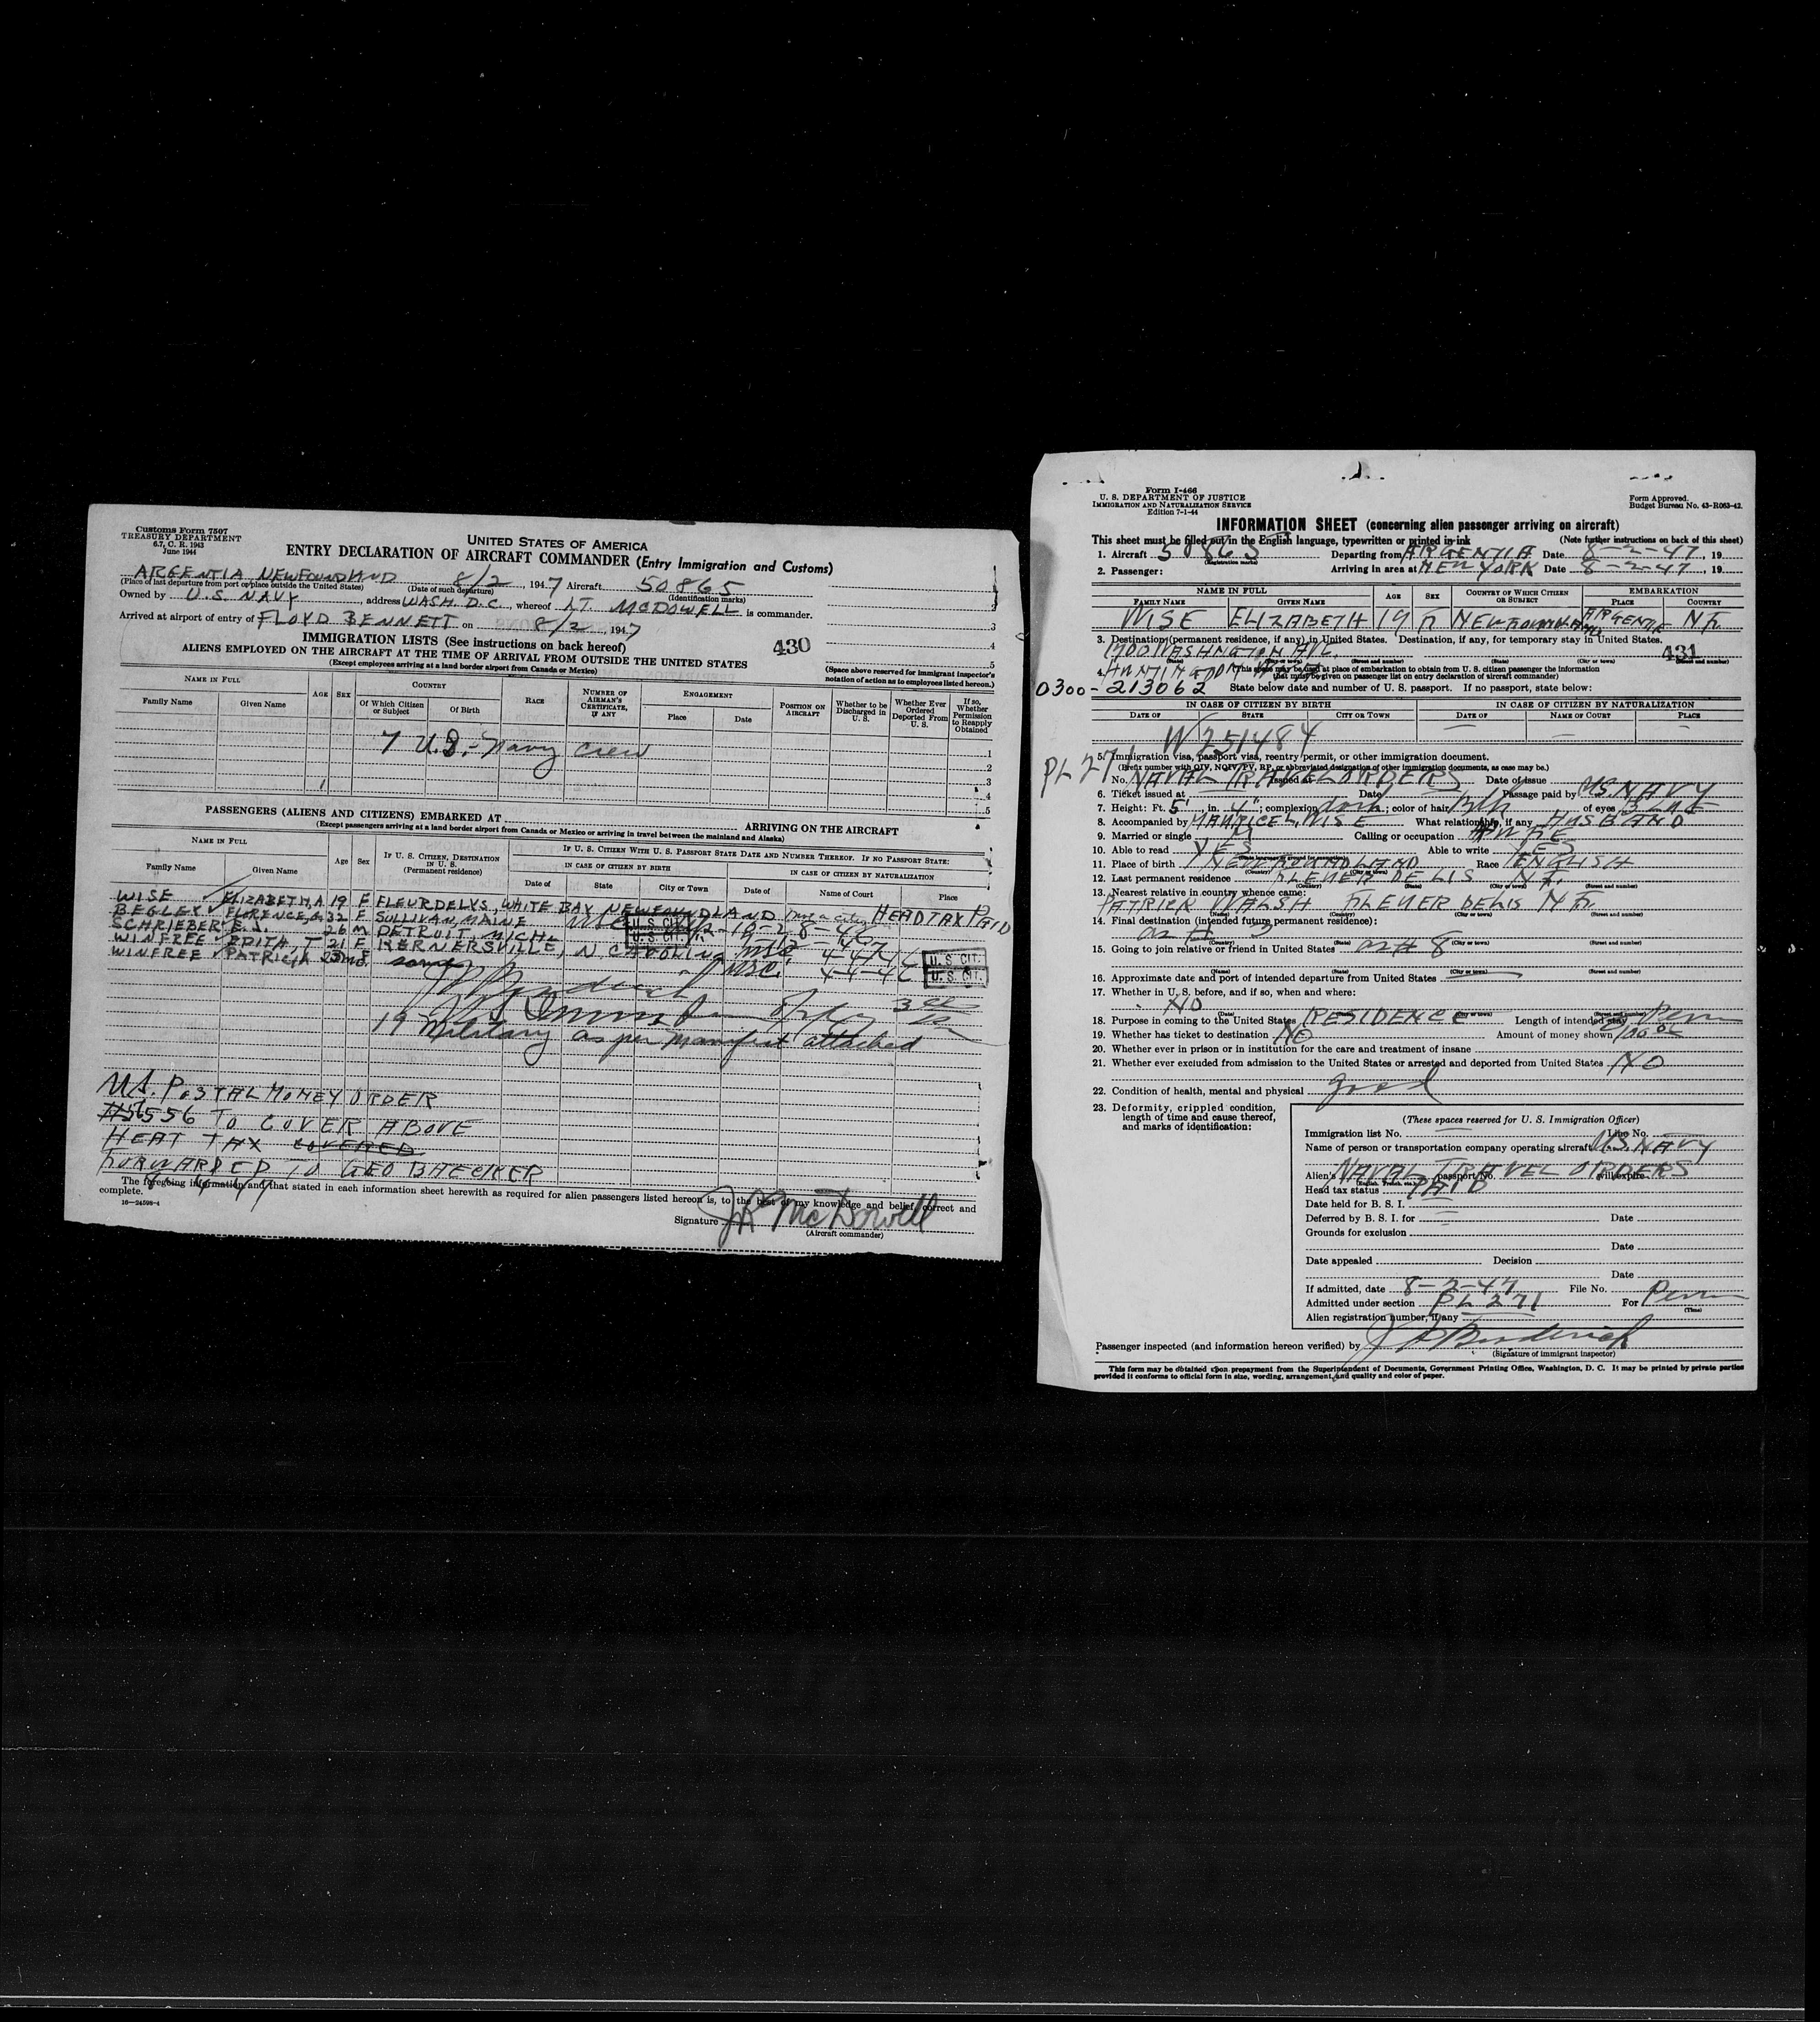 Customs Form 7507
TREASURY DEPARTMENT
6.7, C. R. 1943
June 1944
UNITED STATES OF AMERICA
ENTRY DECLARATION OF AIRCRAFT COMMANDER (Entry Immigration and Customs)
ARGENTIA NEWFOUNDLAND 8/2, 1947 Aircraft 50865
(Place of last departure from port or place outside the United States) (Date of such departure) (Identification marks)
Owned by U.S. NAVY, address WASH. D.C., whereof LT. MCDOWELL is commander.
Arrived at airport of entry of FLOYD BENNETT on 8/2, 1947
430
IMMIGRATION LISTS (See instructions on back hereof)
ALIENS EMPLOYED ON THE AIRCRAFT AT THE TIME OF ARRIVAL FROM OUTSIDE THE UNITED STATES
(Except employees arriving at a land border airport from Canada or Mexico)
(Space above reserved for immigrant inspector's notation of action as to employees listed hereon.)
NAME IN FULL AGE SEX COUNTRY RACE NUMBER OF AIRMAN'S CERTIFICATE, IF ANY ENGAGEMENT POSITION ON AIRCRAFT Whether to be Discharged in U. S. Whether Ever Ordered Deported From U. S. If so, Whether Permission to Reapply Obtained
Family Name Given Name Of Which Citizen or Subject Of Birth Place Date
7 U.S. Navy crew
PASSENGERS (ALIENS AND CITIZENS) EMBARKED AT ARRIVING ON THE AIRCRAFT
(Except passengers arriving at a land border airport from Canada or Mexico or arriving in travel between the mainland and Alaska)
NAME IN FULL Age Sex IF U. S. CITIZEN, DESTINATION IN U. S. (Permanent residence) IF U. S. CITIZEN WITH U. S. PASSPORT STATE DATE AND NUMBER THEREOF. IF NO PASSPORT STATE:
IN CASE OF CITIZEN BY BIRTH IN CASE OF CITIZEN BY NATURALIZATION
Family Name Given Name Date of State City or Town Date of Name of Court Place
WISE ELIZABETH, A 19 F FLEURDELYS, WHITE BAY NEWFOUNDLAND HEADTAX PAID
BEGLEY FLORENCE, G 32 F SULLIVAN, MAINE U. S. CIT.
SCHRIEBER E. J. 26 M DETROIT, MICH. U. S. CIT.
WINFREE EDITA, T 21 F KERNERSVILLE, N CAROLINA U. S. CIT.
WINFREE PATRICIA same 4-4-46 U. S. CIT.
19 Military as per manifest attached
U.S. POSTAL MONEY ORDER
#56556 TO COVER ABOVE
HEAT TAX COVERED
FORWARDED TO GEO BAECKER
The foregoing information and that stated in each information sheet herewith as required for alien passengers listed hereon is, to the best of my knowledge and belief, correct and complete.
16—24598-4
Signature J R McDowell
(Aircraft commander)
Form I-466
U. S. DEPARTMENT OF JUSTICE
IMMIGRATION AND NATURALIZATION SERVICE
Edition 7-1-44
Form Approved.
Budget Bureau No. 43-R063-42.
INFORMATION SHEET (concerning alien passenger arriving on aircraft)
This sheet must be filled out in the English language, typewritten or printed in ink (Note further instructions on back of this sheet)
1. Aircraft 50865 Departing from ARGENTIA Date 8-2-47, 19
(Registration marks)
2. Passenger: Arriving in area at NEW YORK Date 8-2-47, 19
NAME IN FULL AGE SEX COUNTRY OF WHICH CITIZEN OR SUBJECT EMBARKATION
FAMILY NAME GIVEN NAME PLACE COUNTRY
WISE ELIZABETH 19 F NEWFOUNDLAND ARGENTIA NF.
3. Destination (permanent residence, if any) in United States. Destination, if any, for temporary stay in United States.
1700 WASHINGTON AVE. 431
(State) (City or town) (Street and number) (State) (City or town) (Street and number)
4. HUNTINGTON (This space may be used at place of embarkation to obtain from U. S. citizen passenger the information that must be given on passenger list on entry declaration of aircraft commander)
0300-213062 State below date and number of U. S. passport. If no passport, state below:
IN CASE OF CITIZEN BY BIRTH IN CASE OF CITIZEN BY NATURALIZATION
DATE OF STATE CITY OR TOWN DATE OF NAME OF COURT PLACE
W 251484
PL 271
5. Immigration visa, passport visa, reentry permit, or other immigration document.
(Prefix number with QIV, NQIV, PV, RP, or abbreviated designation of other immigration documents, as case may be.)
No. NAVAL TRAVEL ORDERS Issued at Date of issue
6. Ticket issued at Date Passage paid by U.S. NAVY
7. Height: Ft. 5', in. 4"; complexion dark; color of hair Blk of eyes BLUE
8. Accompanied by MAURICE L. WISE What relationship, if any HUSBAND
9. Married or single M Calling or occupation H WIFE
10. Able to read YES Able to write YES
11. Place of birth NEWFOUNDLAND Race ENGLISH
12. Last permanent residence FLEUER DE LIS N F.
13. Nearest relative in country whence came:
PATRICK WALSH FLEUER DELIS N F.
14. Final destination (intended future permanent residence):
as # 3
15. Going to join relative or friend in United States as # 8
16. Approximate date and port of intended departure from United States
17. Whether in U. S. before, and if so, when and where:
NO
18. Purpose in coming to the United States RESIDENCE Length of intended stay Perm
19. Whether has ticket to destination NO Amount of money shown $100.00
20. Whether ever in prison or in institution for the care and treatment of insane
21. Whether ever excluded from admission to the United States or arrested and deported from United States NO
22. Condition of health, mental and physical good
23. Deformity, crippled condition, length of time and cause thereof, and marks of identification:
(These spaces reserved for U. S. Immigration Officer)
Immigration list No. Line No.
Name of person or transportation company operating aircraft U.S. NAVY
Alien's NAVAL TRAVEL ORDERS passport No. will expire
Head tax status PAID
Date held for B. S. I.
Deferred by B. S. I. for Date
Grounds for exclusion
Date
Date appealed Decision
Date
If admitted, date 8-2-47 File No.
Admitted under section PL 271 For Perm
(Time)
Alien registration number, if any
Passenger inspected (and information hereon verified) by J P Broderick
(Signature of immigrant inspector)
This form may be obtained upon prepayment from the Superintendent of Documents, Government Printing Office, Washington, D. C. It may be printed by private parties
provided it conforms to official form in size, wording, arrangement, and quality and color of paper.